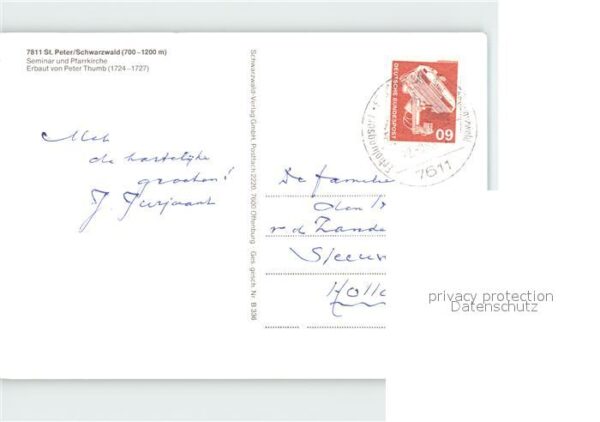 7811 St. Peter/Schwarzwald (700-1200 m)
Seminar und Pfarrkirche
Erbaut von Peter Thumb (1724-1727)
Met
de hartelijke
groeten!
J.
Schwarzwald-Verlag GmbH, Postfach 2220, 7600 Offenburg · Ges. gesch. Nr. B 336
DEUTSCHE BUNDESPOST
60
7611
De familie
v d Zande
Holla
privacy protection
Datenschutz